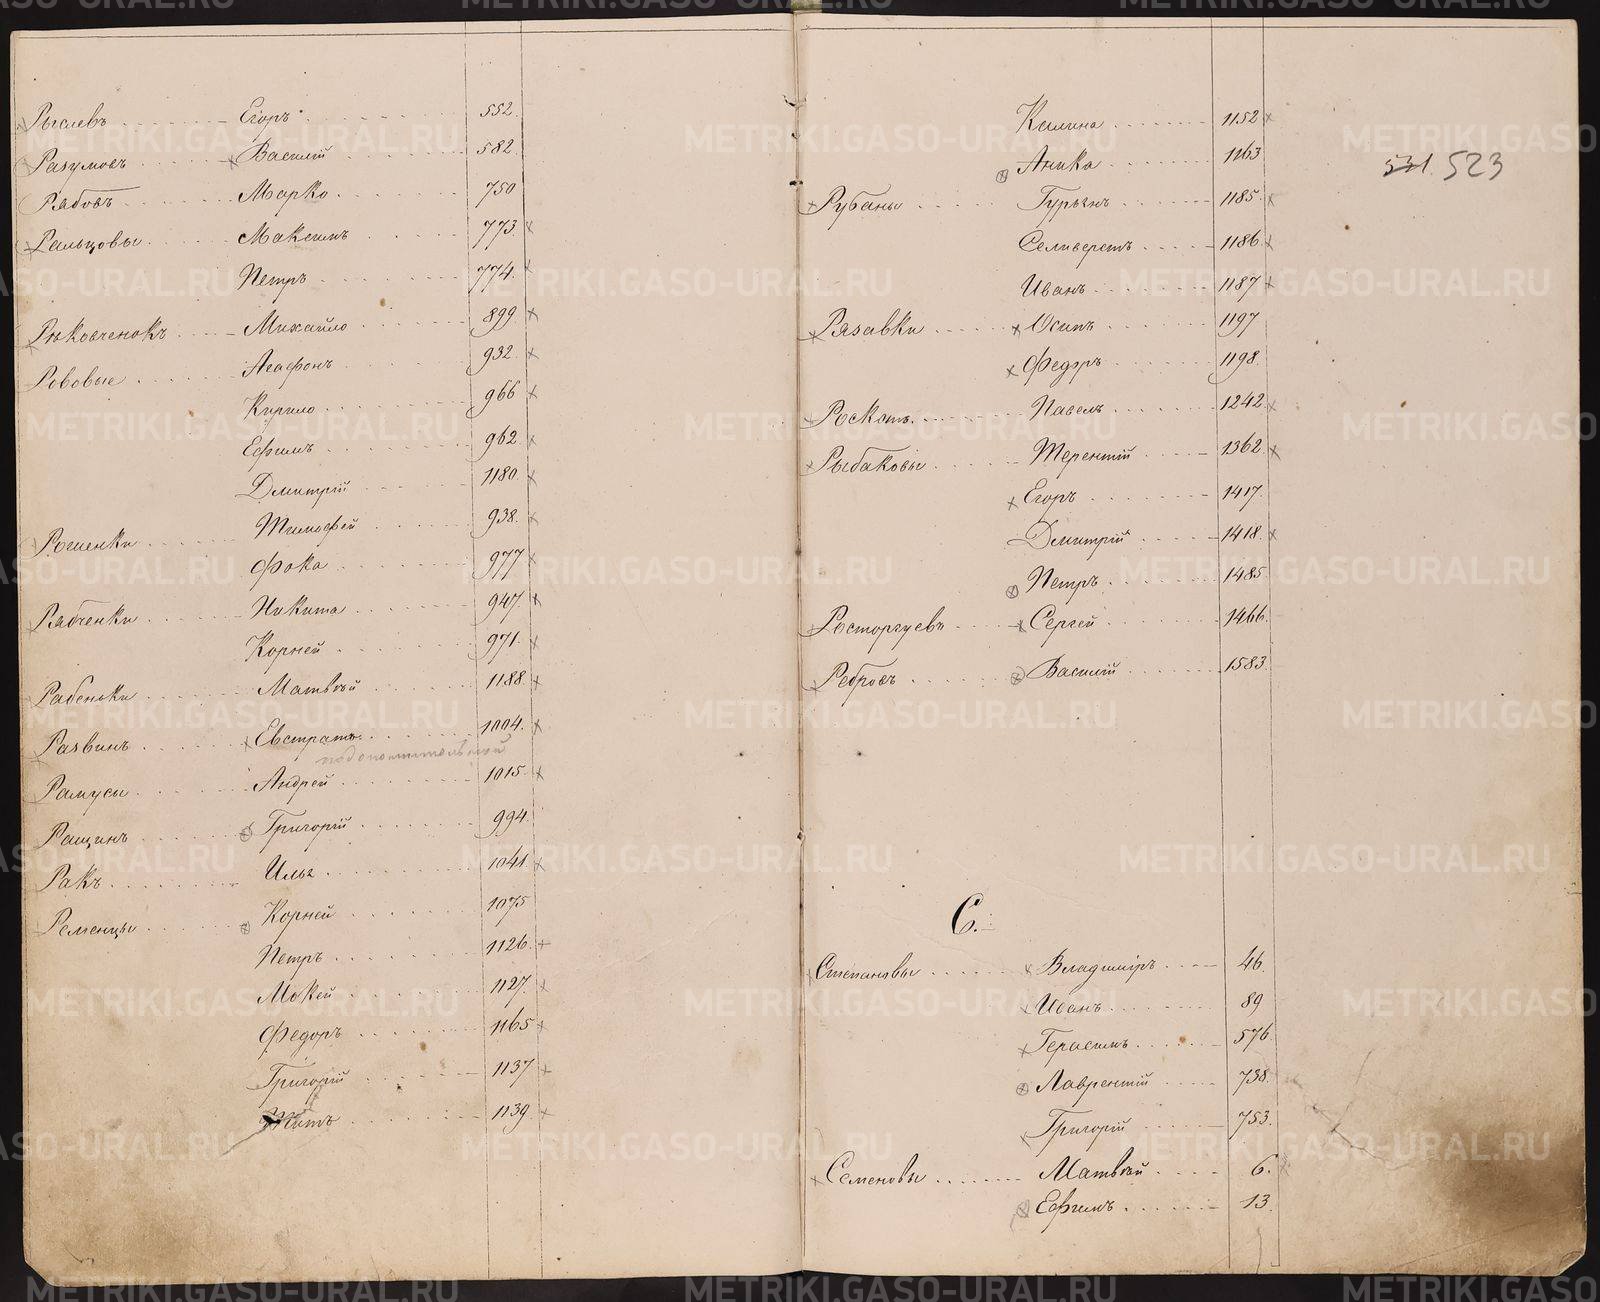 Рыслевъ Егоръ 552.
Разумовъ Василій 582
Рябовъ Марко 750
Ральцовы Максимъ 773.
Петръ 774.
Рыковченокъ Михайло 899.
Рововые Агафонъ 932.
Кирило 966
Ефимъ 962.
Дмитрій 1180.
Рогиенки Тимофей 938.
Фока 977
Рябченки Никита 947.
Корней 971.
Рабеньки Матвѣй 1188
Развинъ Евстратъ 1004.
Рамусы Андрей 1015
Ращинъ Григорій 994.
Ракъ Илья 1041.
Ременцы Корней 1075
Петръ 1126.
Мокей 1127.
Федоръ 1165
Григорій 1137
Титъ 1139.
Калина 1152
Аника 1163
531. 523
Рубаны Гурьянъ 1185.
Селиверстъ 1186.
Иванъ 1187
Рязавки Осипъ 1197
Федоръ 1198.
Роскотъ Павелъ 1242.
Рыбаковы Терентій 1362.
Егоръ 1417.
Дмитрій 1418.
Петръ 1485
Росторгуевъ Сергей 1466.
Ребровъ Василій 1583
С.
Степановы Владиміръ 46.
Иванъ 89
Герасимъ 576
Лаврентій 738.
Григорій 753.
Семеновы Матвѣй 6.
Ефимъ 13.
METRIKI.GASO-URAL.RU